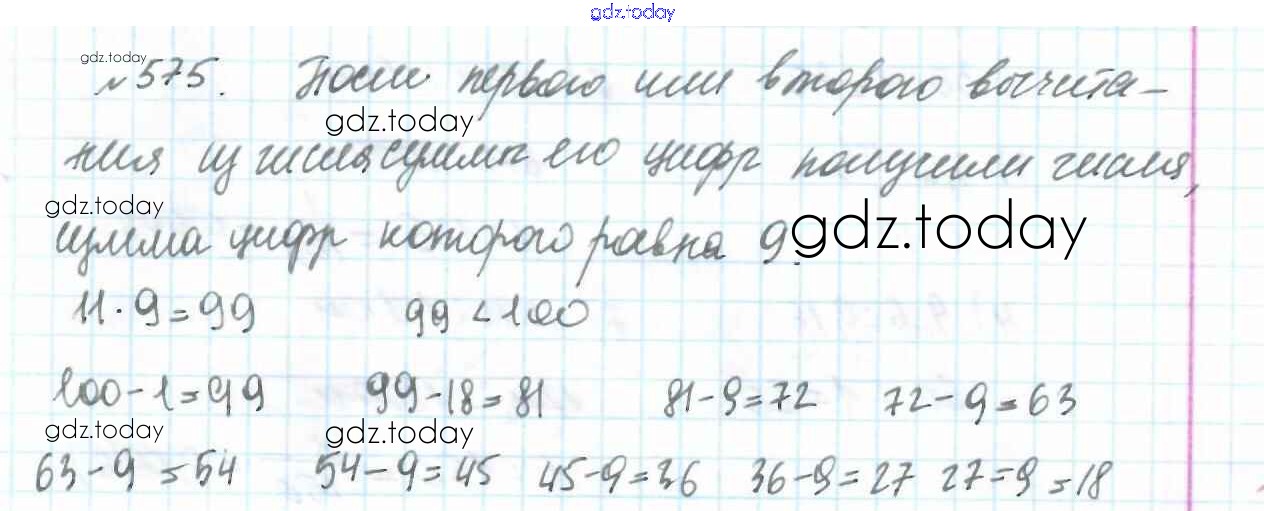 gdz.today
gdz.today
№575. После первого или второго вычита-
gdz.today
ния из числа суммы его цифр получили числа,
gdz.today
сумма цифр которого равна 9.
gdz.today
11·9=99 99<100
100-1=99 99-18=81 81-9=72 72-9=63
gdz.today gdz.today
63-9=54 54-9=45 45-9=36 36-9=27 27-9=18